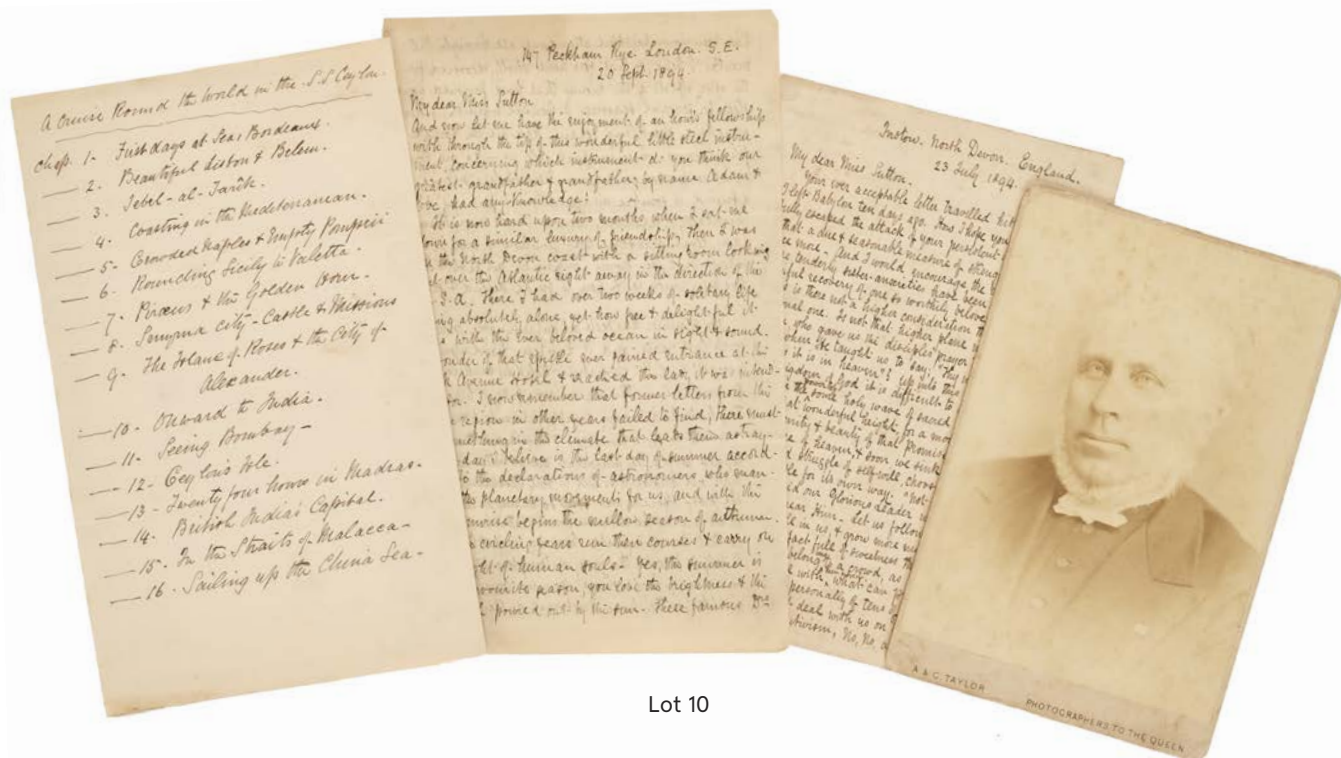 A Cruise Round the World in the S.S Ceylon.
Chap. 1- First days at Sea: Bordeaux.
2- Beautiful Lisbon & Belem.
3- Jebel-al-Tarik.
4- Coasting in the Mediterranean.
5- Crowded Naples & Empty Pompeii
6- Rounding Sicily to Valetta.
7- Piræus & the Golden Horn.
8- Smyrna city- Castle & Missions
9- The Island of Roses & the City of
Alexander.
10- Onward to India.
11- Seeing Bombay-
12- Ceylon's Isle.
13- Twenty four hours in Madras.
14. British India's Capital.
15- In the Straits of Malacca-
16- Sailing up the China Sea-
147 Peckham Rye. London. S.E.
20 Sept. 1894.
My dear Miss Sutton
And now let me have the enjoyment of an hour's fellowship
with through the tip of this wonderful little steel instru-
ment, concerning which instrument do you think our
greatest-grandfather & grandfather by name Adam &
had any knowledge!
It is now hard upon two months, when I sat me
down for a similar luxury of friendship, then I was
the North Devon coast with a sitting room looking
over the Atlantic right away in the direction of the
S.A. There I had over two weeks of solitary life
absolutely alone, yet how free & delightful it
with the ever beloved ocean in sight & sound.
of that epistle ever gained entrance at the
Avenue Hotel & reached the lady it was intend-
for. I now remember that former letters from this
region in other years failed to find, there must
something in the climate that leads them astray-
day I believe is the last day of summer accord-
to the declarations of astronomers, who man-
the planetary movements for us, and with the
begins the mellow season of autumn.
circling years run their courses & carry on
of human souls- Yes, the summer is
season, you love the brightness & the
poured out by the sun. These famous Drs
Instow. North Devon. England.
23 July 1894.
My dear Miss Sutton.
Your ever acceptable letter travelled
I left Babylon ten days ago. How I hope you
escaped the attack of your persistent
that a due & seasonable measure of
more. And I would encourage the
tenderly sister-anxieties have been
recovery of one so worthily beloved
is there not a higher consideration
one. Is not that higher plane
who gave us the disciples' prayer
when He taught us to say; "Thy
it is in heaven"? up into this
of God it is difficult to
some holy wave of sacred
wonderful height, for a
& beauty of that promise
of heaven, & soon we sink
struggle of self-will,
for its own way. "not
our Glorious Leader
Him. Let us follow
in us & grow more
full of sweetness
belong a crowd, as
with, what can
personally of tens
deal with us on
No, No,
A & G. TAYLOR
PHOTOGRAPHERS TO THE QUEEN
Lot 10